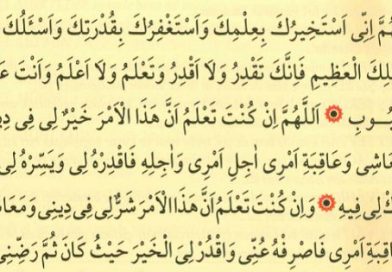 هُمَّ اِنِّى اَسْتَخِيرُكَ بِعِلْمِكَ وَاَسْتَغْفِرُكَ بِقُدْرَتِكَ وَاَسْئَلُكَ
لِكَ الْعَظِيمِ فَاِنَّكَ تَقْدِرُ وَلَا اَقْدِرُ وَتَعْلَمُ وَلَا اَعْلَمُ وَاَنْتَ عَ
ُوبِ اَللّٰهُمَّ اِنْ كُنْتَ تَعْلَمُ اَنَّ هَذَا الْاَمْرَ خَيْرٌ لِى فِى دِي
عَاشِى وَعَاقِبَةِ اَمْرِى اٰجِلِ اَمْرِى وَاٰجِلِهِ فَاقْدِرْهُ لِى وَيَسِّرْهُ لِى
كْ لِى فِيهِ وَاِنْ كُنْتَ تَعْلَمُ اَنَّ هَذَا الْاَمْرَ شَرٌّ لِى فِى دِينِى وَمَعَا
اقِبَةِ اَمْرِى فَاصْرِفْهُ عَنِّى وَاقْدُرْ لِىَ الْخَيْرَ حَيْثُ كَانَ ثُمَّ رَضِّنِى